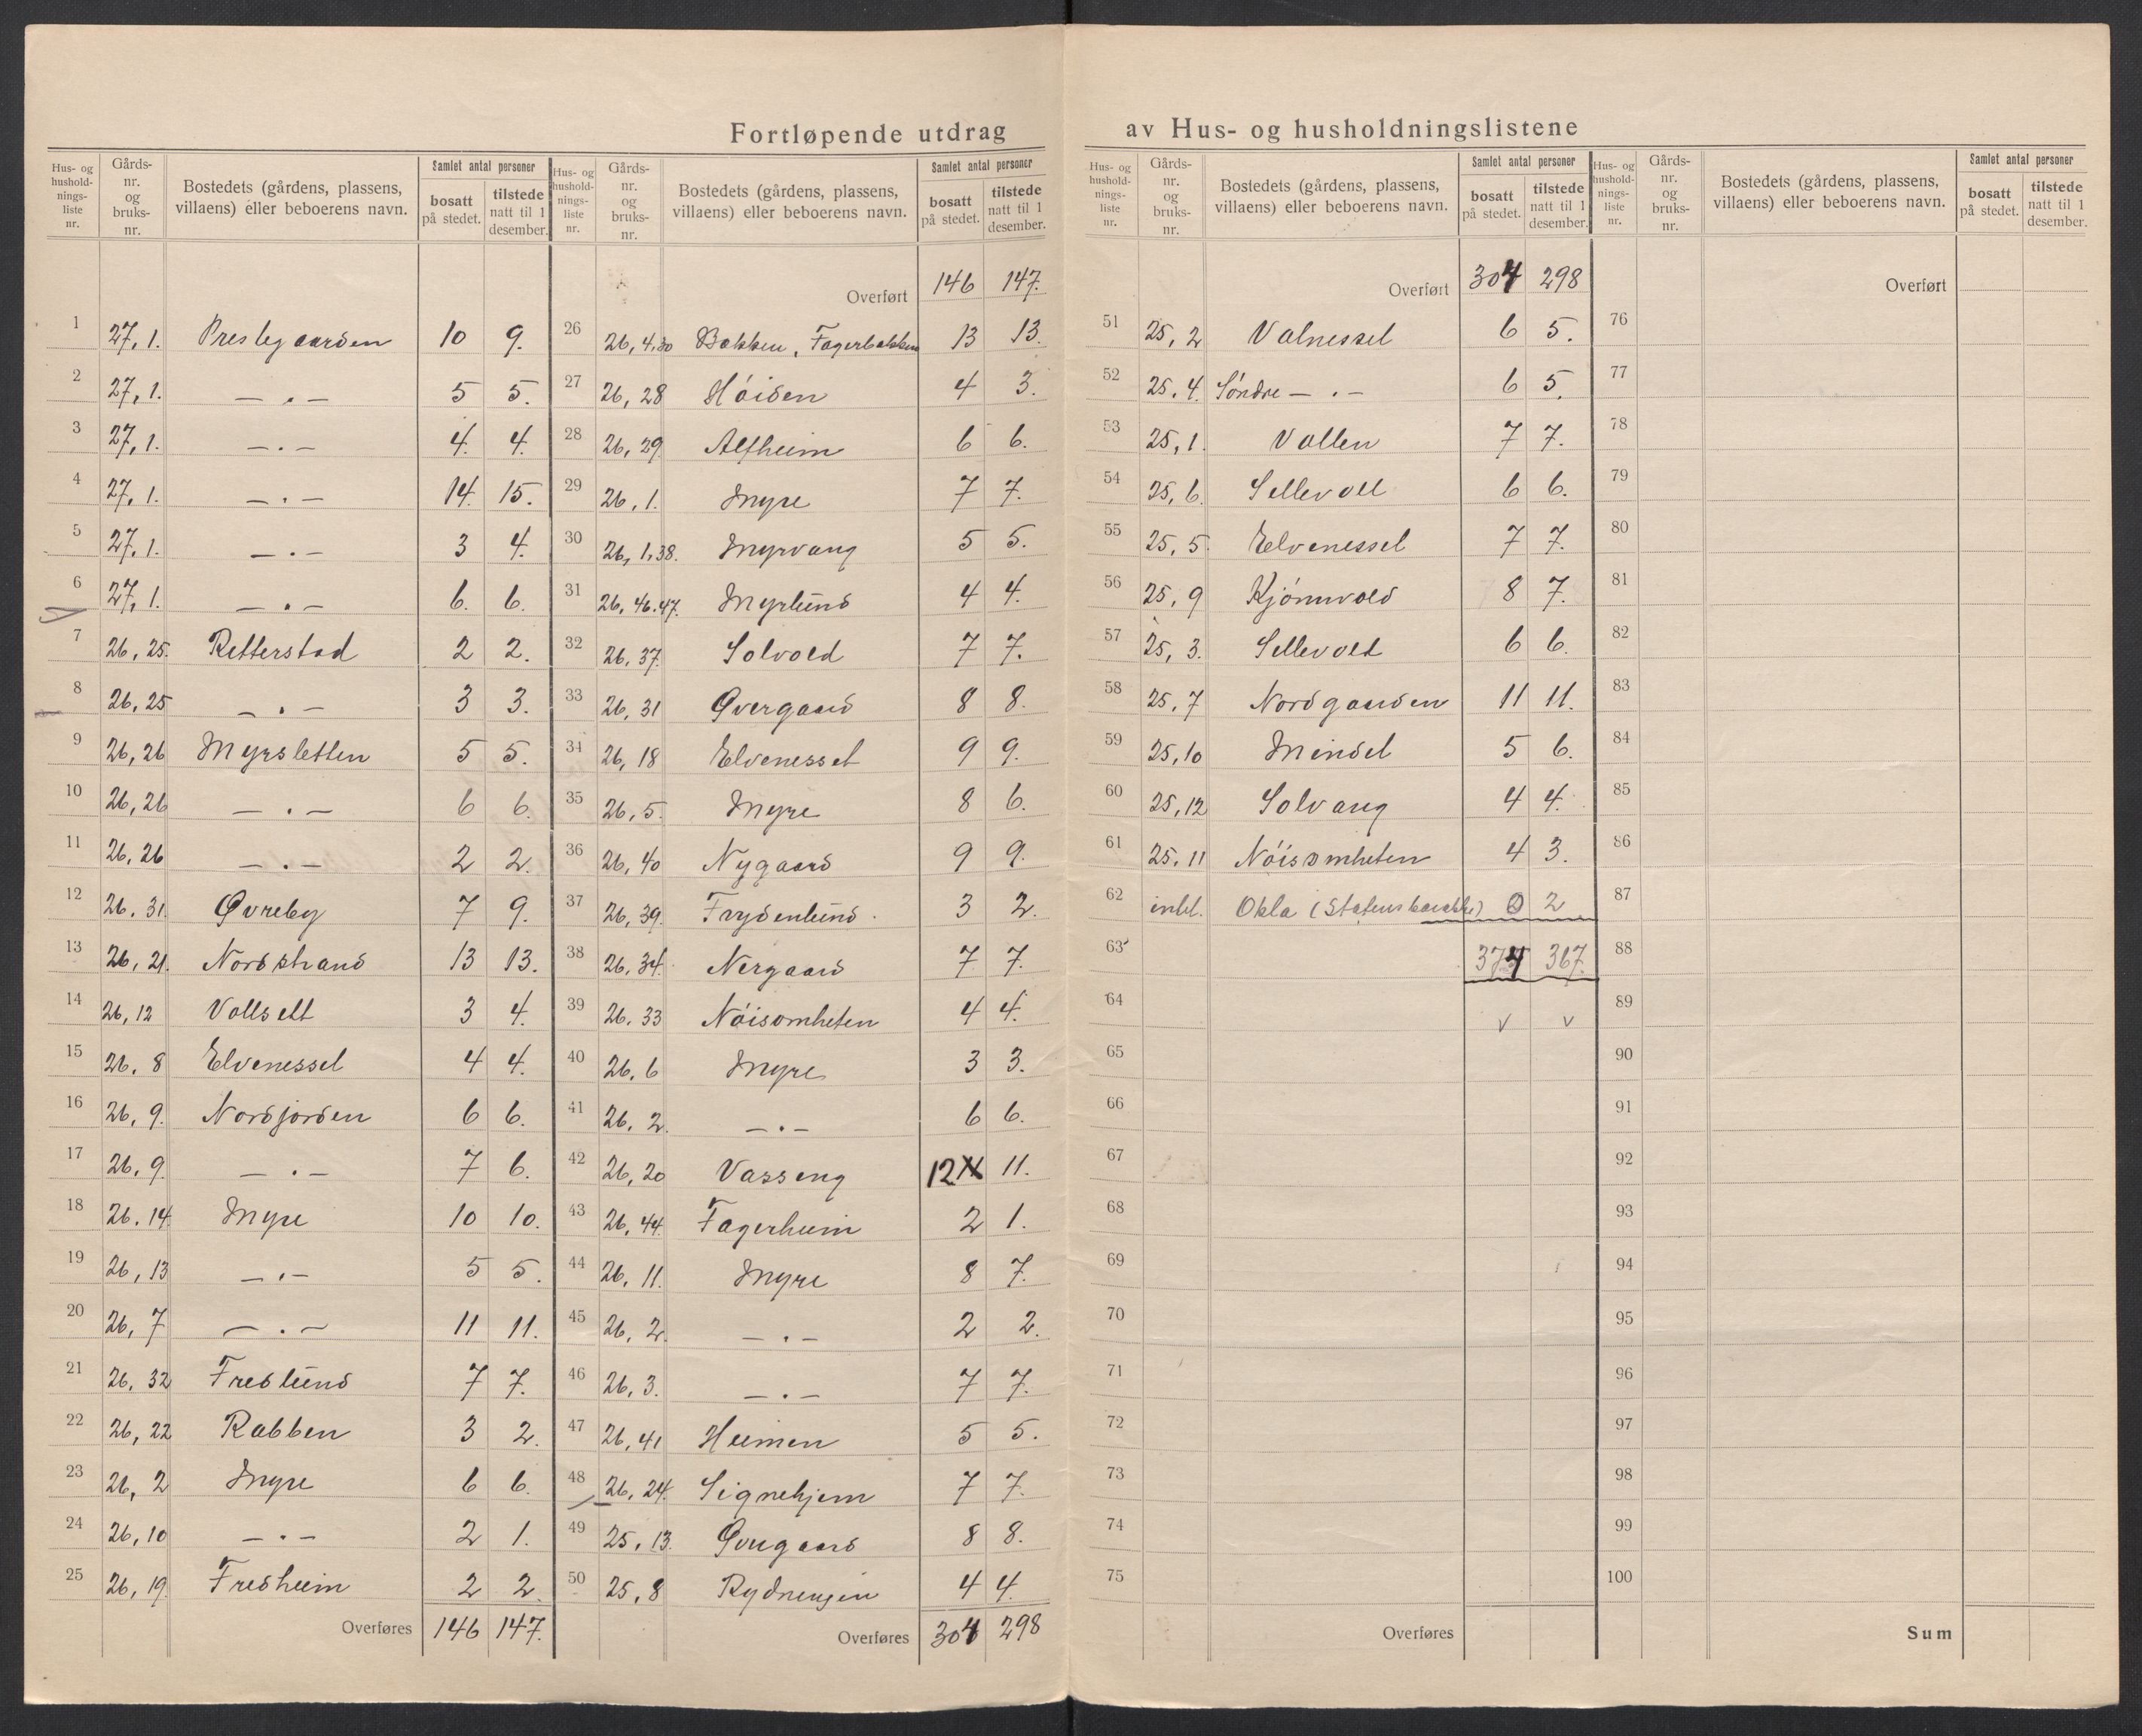 Fortløpende utdrag av Hus- og husholdningslistene
Hus- og husholdningsliste nr. | Gårds-nr. og bruks-nr. | Bostedets (gårdens, plassens, villaens) eller beboerens navn. | Samlet antal personer | bosatt på stedet. | tilstede natt til 1 desember.
1 | 27, 1. | Prestegaarden | 10 | 9.
2 | 27, 1. | — . — | 5 | 5.
3 | 27, 1. | — . — | 4. | 4.
4 | 27, 1. | — . — | 14. | 15.
5 | 27, 1. | — . — | 3 | 4.
6 | 27, 1. | — . — | 6. | 6.
7 | 26, 25. | Retterstad | 2 | 2.
8 | 26, 25 | — . — | 3 | 3.
9 | 26, 26 | Myrsletten | 5 | 5.
10 | 26, 26 | — . — | 6 | 6.
11 | 26, 26 | — . — | 2 | 2.
12 | 26. 31. | Øvreby | 7 | 9.
13 | 26, 21. | Nordstrand | 13 | 13.
14 | 26, 12 | Vollsett | 3 | 4.
15 | 26. 8 | Elvenesset | 4 | 4.
16 | 26, 9. | Nordjorden | 6 | 6.
17 | 26, 9. | — . — | 7 | 6.
18 | 26. 14. | Myre | 10 | 10.
19 | 26, 13 | — . — | 5 | 5.
20 | 26, 7 | — . — | 11 | 11.
21 | 26, 32 | Fredlund | 7 | 7.
22 | 26, 22 | Rabben | 3 | 2.
23 | 26, 2 | Myre | 6 | 6.
24 | 26, 10 | — . — | 2 | 1.
25 | 26, 19. | Fredheim | 2 | 2.
Overføres | 146 | 147.
Hus- og husholdningsliste nr. | Gårds-nr. og bruks-nr. | Bostedets (gårdens, plassens, villaens) eller beboerens navn. | Samlet antal personer | bosatt på stedet. | tilstede natt til 1 desember.
Overført | 146 | 147.
26 | 26, 4.30 | Bakken, Fagerbakken | 13 | 13.
27 | 26, 28 | Høiden | 4 | 3.
28 | 26, 29. | Alfheim | 6 | 6.
29 | 26, 1. | Myre | 7 | 7.
30 | 26, 1,38. | Myrvang | 5 | 5.
31 | 26, 46.47. | Myrlund | 4 | 4.
32 | 26, 37. | Solvold | 7 | 7.
33 | 26, 31 | Øvergaard | 8 | 8.
34 | 26, 18 | Elvenesset | 9 | 9.
35 | 26, 5. | Myre | 8 | 6.
36 | 26, 40 | Nygaard | 9 | 9.
37 | 26, 39. | Frydenlund. | 3 | 2.
38 | 26, 34. | Nergaard | 7 | 7.
39 | 26. 33 | Nøisomheten | 4 | 4.
40 | 26, 6 | Myre | 3 | 3.
41 | 26, 2. | — . — | 6 | 6.
42 | 26, 20 | Vasseng | 12 | 11.
43 | 26, 44. | Fagerheim | 2 | 1.
44 | 26, 11. | Myre | 8 | 7.
45 | 26, 2. | — . — | 2 | 2.
46 | 26, 3. | — . — | 7 | 7.
47 | 26, 41 | Heimen | 5 | 5.
48 | 26, 24. | Signehjem | 7 | 7.
49 | 25, 13. | Øvregaard | 8 | 8.
50 | 25, 8 | | 4 | 4.
Overføres | 304 | 298
Hus- og husholdningsliste nr. | Gårds-nr. og bruks-nr. | Bostedets (gårdens, plassens, villaens) eller beboerens navn. | Samlet antal personer | bosatt på stedet. | tilstede natt til 1 desember.
Overført | 304 | 298
51 | 25, 2 | Valnesset | 6 | 5.
52 | 25, 4. | Søndre — . — | 6 | 5.
53 | 25, 1. | Vollen | 7 | 7.
54 | 25, 6. | Sellevoll | 6 | 6.
55 | 25, 5. | Elvenesset | 7 | 7.
56 | 25, 9 | Kjønnvold | 8 | 7.
57 | 25, 3. | Sellevold | 6 | 6.
58 | 25, 7 | Nordgaarden | 11 | 11.
59 | 25, 10 | Mindet | 5 | 6.
60 | 25, 12 | Solvang | 4 | 4.
61 | 25, 11 | Nøisomheten | 4 | 3.
62 | inkl. | Okla (Statens barakke) | 0 | 2
63 | 374 | 367.
64 | v | v
65
66
67
68
69
70
71
72
73
74
75
Overføres
Hus- og husholdningsliste nr. | Gårds-nr. og bruks-nr. | Bostedets (gårdens, plassens, villaens) eller beboerens navn. | Samlet antal personer | bosatt på stedet. | tilstede natt til 1 desember.
Overført
76
77
78
79
80
81
82
83
84
85
86
87
88
89
90
91
92
93
94
95
96
97
98
99
100
Sum